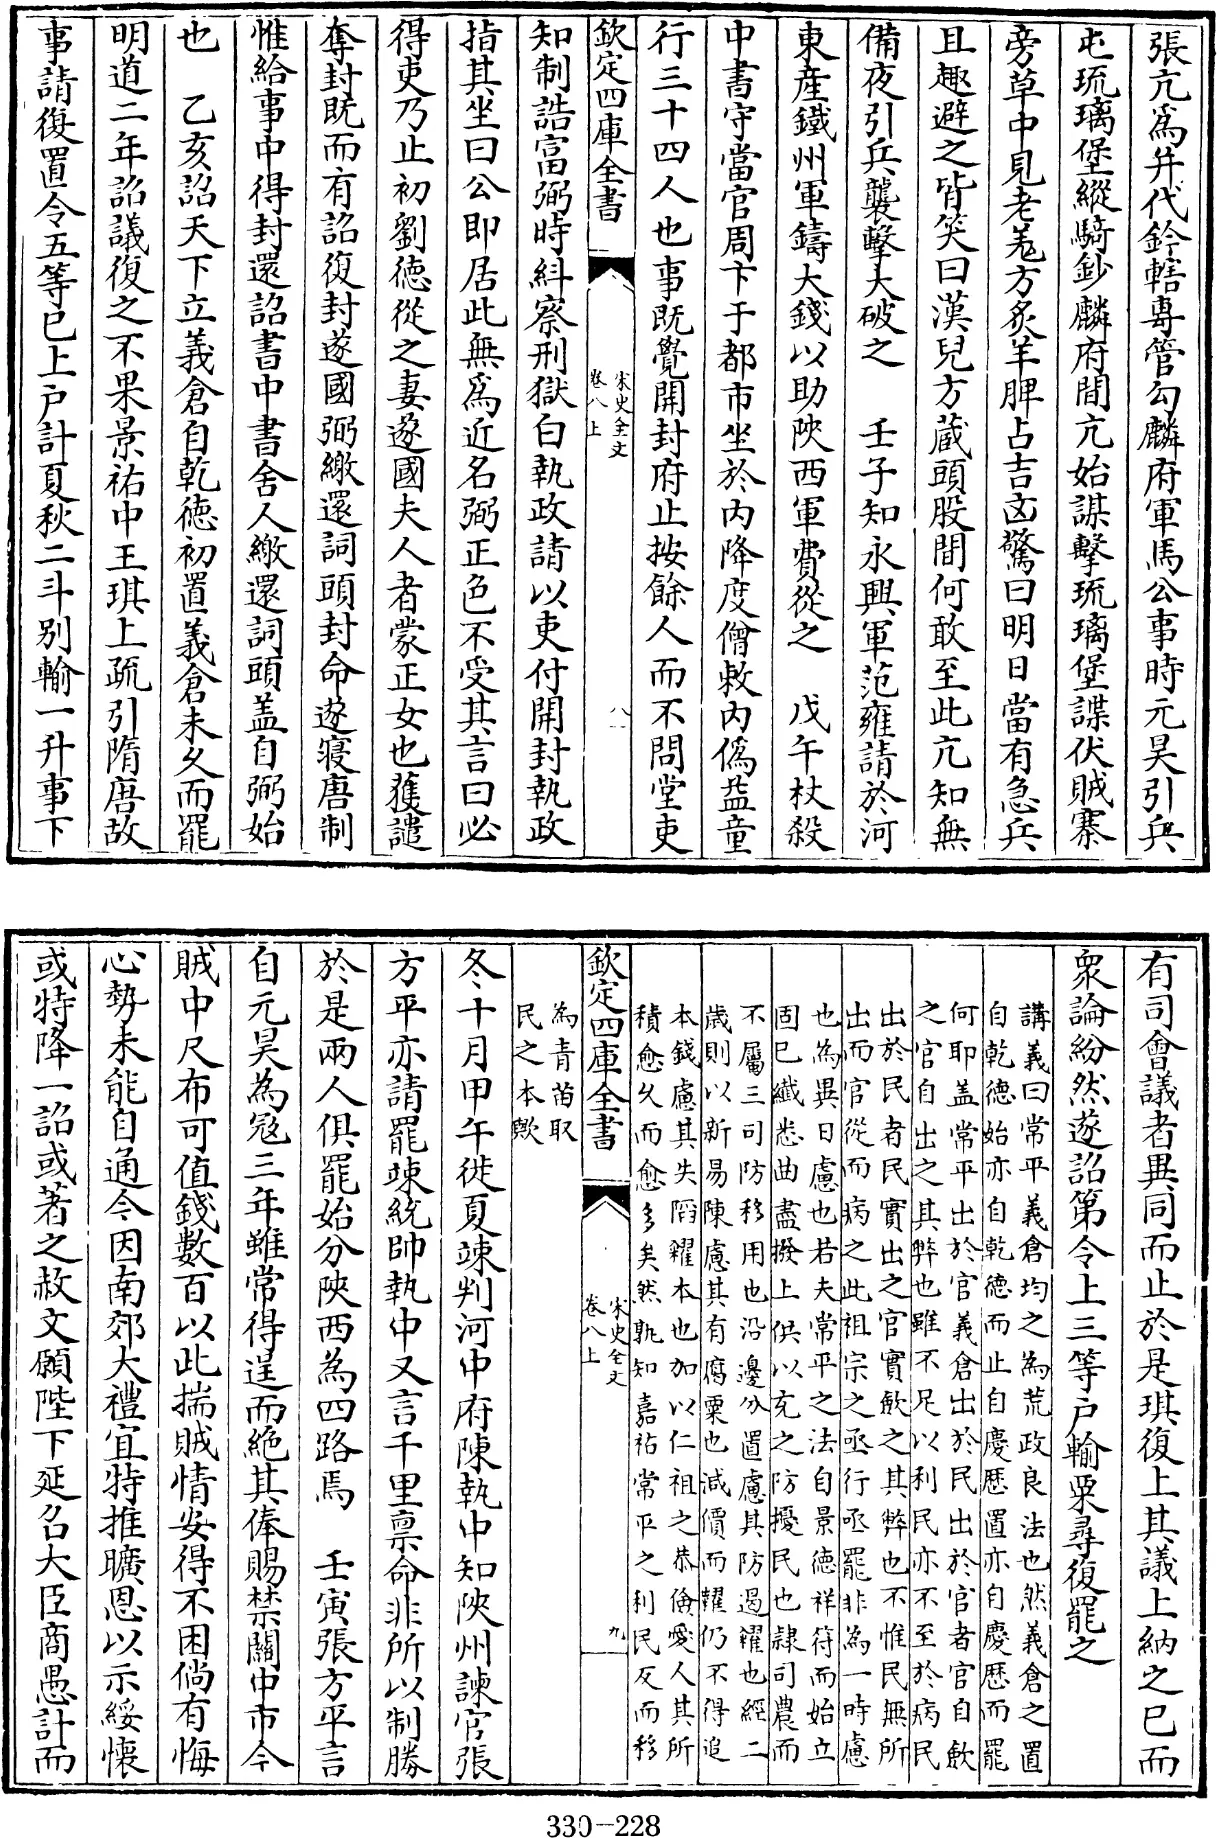 張亢為并代鈐轄專管勾麟府軍馬公事時元昊引兵
屯琉璃堡縱騎鈔麟府間亢始謀擊琉璃堡諜伏賊寨
旁草中見老羌方炙羊脾占吉凶驚曰明日當有急兵
且趣避之皆笑曰漢兒方藏頭股間何敢至此亢知無
備夜引兵襲擊大破之　壬子知永興軍范雍請於河
東產鐵州軍鑄大錢以助陜西軍費從之　戊午杖殺
中書守當官周卞于都市坐於內降度僧敕內偽益童
行三十四人也事既覺開封府止按餘人而不問堂吏
欽定四庫全書
宋史全文
卷八上
八
知制誥富弼時糾察刑獄白執政請以吏付開封執政
指其坐曰公即居此無為近名弼正色不受其言曰必
得吏乃止初劉德從之妻遂國夫人者蒙正女也獲譴
奪封既而有詔復封遂國弼繳還詞頭封命遂寢唐制
惟給事中得封還詔書中書舍人繳還詞頭蓋自弼始
也　乙亥詔天下立義倉自乾德初置義倉未久而罷
明道二年詔議復之不果景祐中王琪上疏引隋唐故
事請復置令五等已上戶計夏秋二斗別輸一升事下
有司會議者異同而止於是琪復上其議上納之已而
衆論紛然遂詔第令上三等戶輸粟尋復罷之
講義曰常平義倉均之為荒政良法也然義倉之置
自乾德始亦自乾德而止自慶歷置亦自慶歷而罷
何耶蓋常平出於官義倉出於民出於官者官自斂
之官自出之其弊也雖不足以利民亦不至於病民
出於民者民實出之官實斂之其弊也不惟民無所
出而官從而病之此祖宗之亟行亟罷非為一時慮
也為異日慮也若夫常平之法自景德祥符而始立
固已纖悉曲盡撥上供以充之防擾民也隸司農而
不屬三司防移用也沿邊分置慮其防過糴也經二
歲則以新易陳慮其有腐粟也減價而糶仍不得追
本錢慮其失陷糴本也加以仁祖之恭儉愛人其所
積愈久而愈多矣然孰知嘉祐常平之利民反而移
為青苗取
民之本歟
欽定四庫全書
宋史全文
卷八上
九
冬十月甲午徙夏竦判河中府陳執中知陜州諫官張
方平亦請罷竦統帥執中又言千里稟命非所以制勝
於是兩人俱罷始分陜西為四路焉　壬寅張方平言
自元昊為寇三年雖常得逞而絕其俸賜禁關中市今
賊中尺布可值錢數百以此揣賊情安得不困倘有悔
心勢未能自通今因南郊大禮宜特推曠恩以示綏懷
或特降一詔或著之赦文願陛下延召大臣商愚計而
330-228